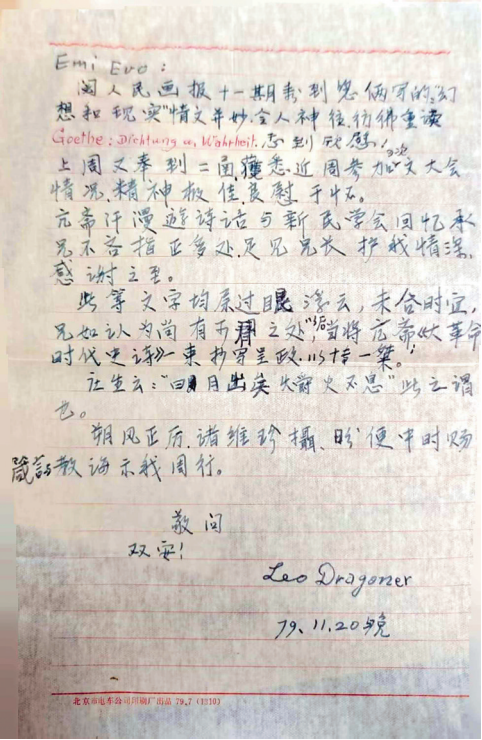 Emi Evo:
阅人民画报十一期看到您俩写的"幻
想和现实"情文并妙令人神往彷佛重读
Goethe: Dichtung u. Wahrheit. 感到欣慰!
上周又奉到二函获悉近周参加文大会
情况.精神极佳.良慰于怀。
亢斋汗漫游诗话与新民学会回忆承
兄不吝指正多处.足见兄长护我情深,
感谢之至。
此等文字均系过眼浮云,未合时宜,
兄如认为尚有可有之处",当将亢斋妖革命
时代史诗》一束抄写呈政.以博一粲。
庄生云:"日月出矣爝火不息"此之谓
也。
朔风正厉.诸维珍摄、盼便中时赐
箴言教诲示我周行。
敬问
双安!
Leo Dragoner
79.11.20晚
北京市电车公司印刷厂出品 79.7 (1310)